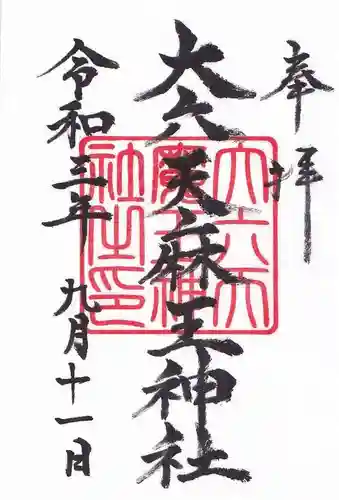 奉拝
大六天麻王神社
令和三年 九月十一日
大六天
魔王神
社之印